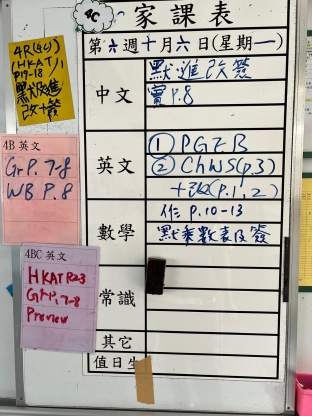 4C
家課表
第六週十月六日(星期一)
中文
默進改簽
P.8
英文
① PGZB
② ChWS(p.3)
(p.1,2)
數學
作 p.10-13
默乘數表及簽
常識
其它
值日生
4R(4C)
(HKAT)
P19-18
默及進
改+簽
4B 英文
Gr P. 7-8
WB P. 8
4BC 英文
HKAT
Gr P. 7-8
Preview